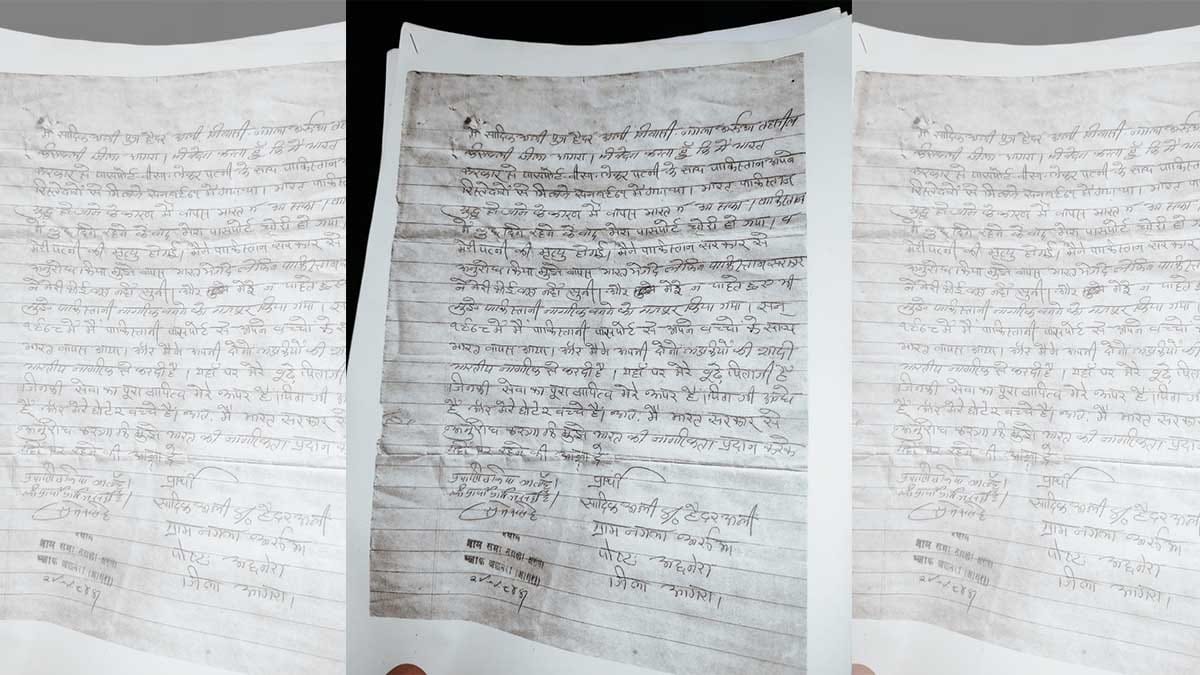 मैं सादिक अली पुत्र हैदर अली निवासी नगला अरुआ तहसील
किरावली जिला आगरा। निवेदन करता हूँ कि मैं भारत
सरकार से पासपोर्ट लेकर पत्नी के साथ पाकिस्तान अपने
रिश्तेदारों से मिलने सन में गया था। भारत पाकिस्तान
युद्ध हो जाने के कारण मैं वापस भारत न आ सका। पाकिस्तान
में कुछ दिन रहने के बाद मेरा पासपोर्ट चोरी हो गया। व
मेरी पत्नी की मृत्यु हो गई। मैंने पाकिस्तान सरकार से
अनुरोध किया मुझे वापस भारत भेज दें लेकिन पाकिस्तान सरकार
ने मेरी कोई बात नहीं सुनी। और मेरे न चाहते हुए भी
मुझे पाकिस्तानी नागरिक बनने को मजबूर किया गया। सन
में मैं पाकिस्तानी पासपोर्ट से अपने बच्चों के साथ
भारत वापस आया। और मैंने अपनी दोनों लड़कियों की शादी
भारतीय नागरिक से कर दी है। यहाँ पर मेरे बूढ़े पिताजी हैं
जिनकी सेवा का पूरा दायित्व मेरे ऊपर है। पिताजी अन्धे
हैं और मेरे छोटे २ बच्चे हैं। अतः मैं भारत सरकार से
अनुरोध करूंगा कि मुझे भारत की नागरिकता प्रदान करके
यहाँ पर रहने की आज्ञा दें
प्रार्थी
सादिक अली s/o हैदर अली
ग्राम नगला अरुआ
पोस्ट अछनेरा
जिला आगरा।
प्रमाणित किया जाता है।
प्रधान
ग्राम सभा
ब्लाक अछनेरा (आगरा)